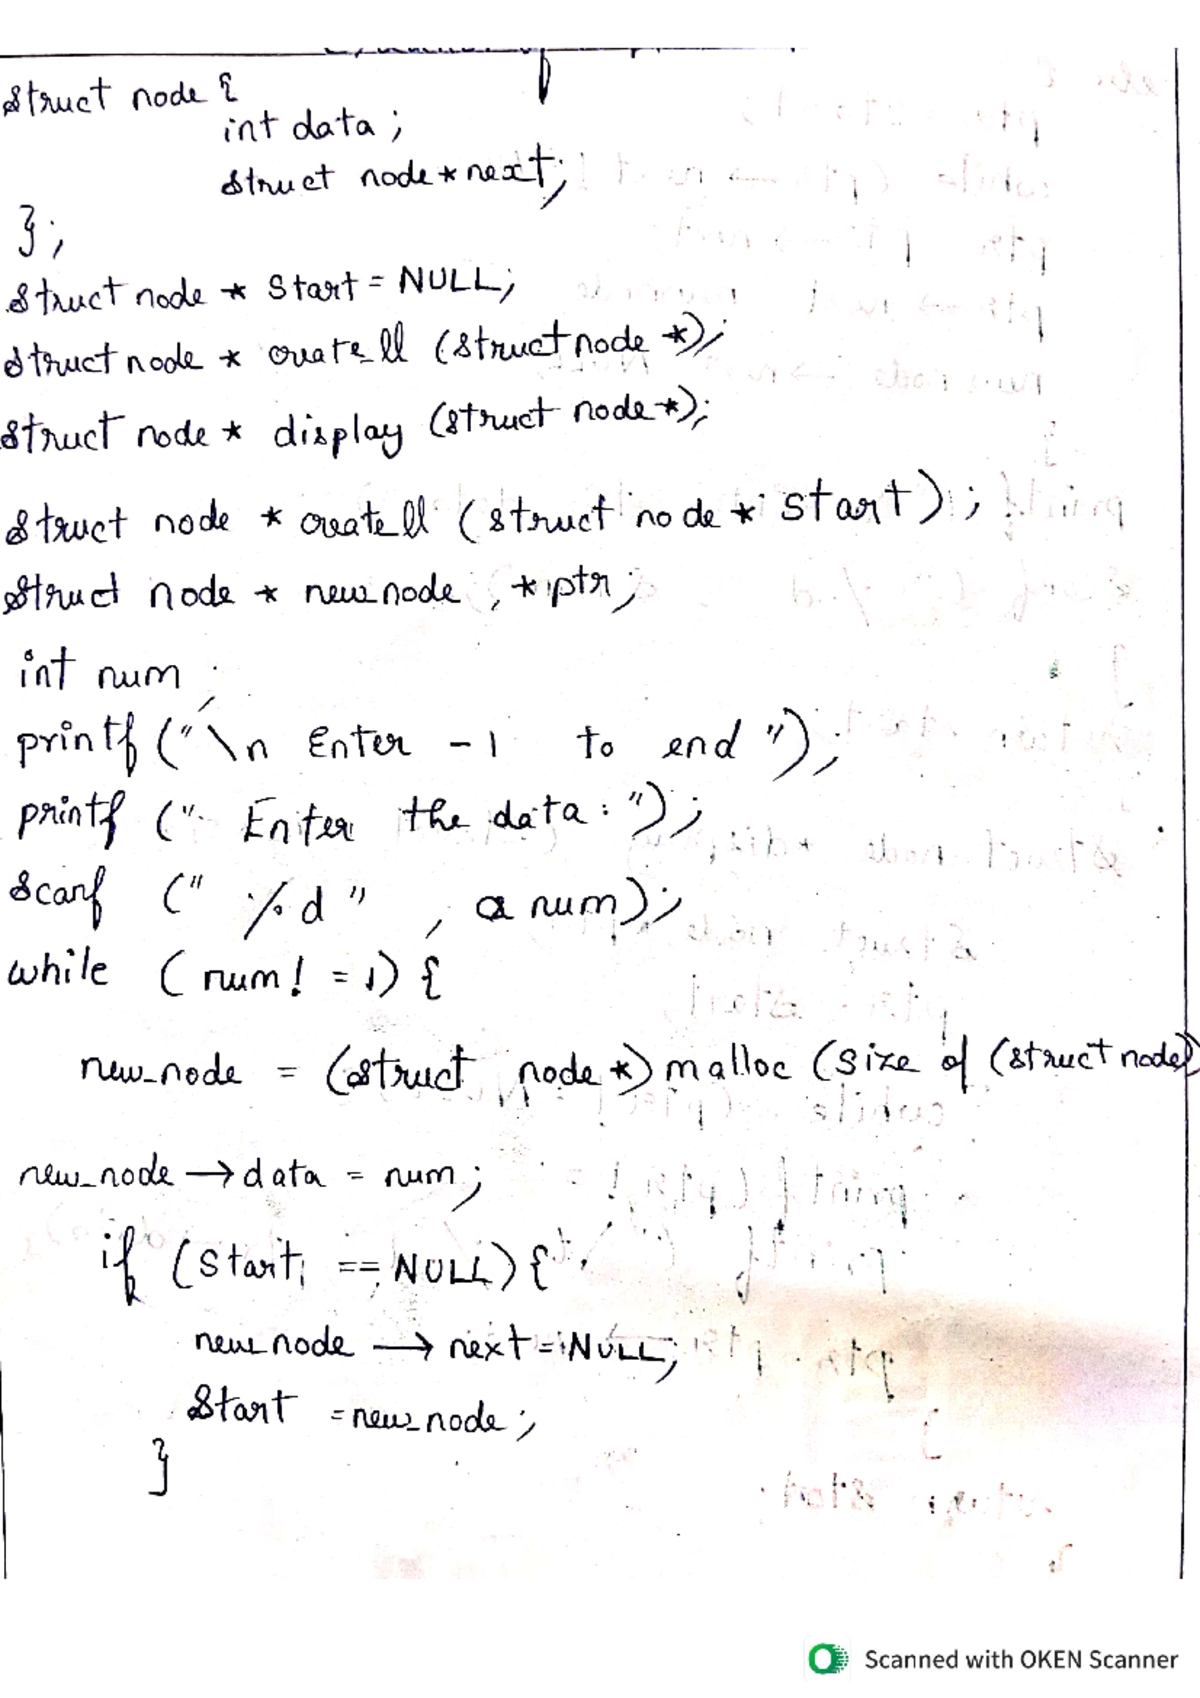 struct node {
int data ;
struct node * next;
};
struct node * Start = NULL;
struct node * create_ll (struct node *);
struct node * display (struct node *);
struct node * create ll (struct node * start) ;
struct node * new_node , * ptr ;
int num ;
printf ("\n Enter - 1 to end ");
printf (" Enter the data : ");
scanf (" %d " , & num);
while ( num ! = 1) {
new_node = (struct node *) malloc (size of (struct node)
new_node → data = num ;
if (Start == NULL) {
new_node → next = NULL;
Start = new_node ;
}
Scanned with OKEN Scanner